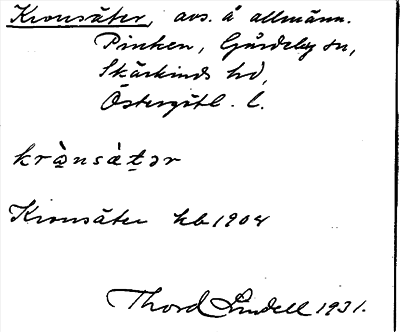 Kronsäter, avs. å allmänn.
Pinken, Gårdeby sn,
Skärkinds hd,
Östergötl. l.
krò̤nsà̤t̠ər
Kronsäter kb 1908
Thord Lindell 1931.